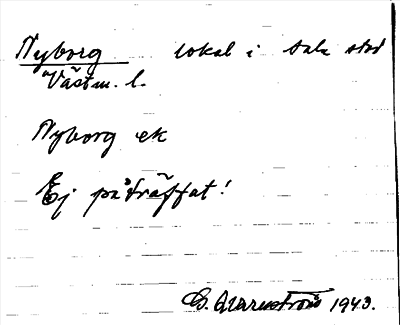 Nyborg lokal i Sala stad
Västm. l.
Nyborg ek
Ej påträffat!
1943.